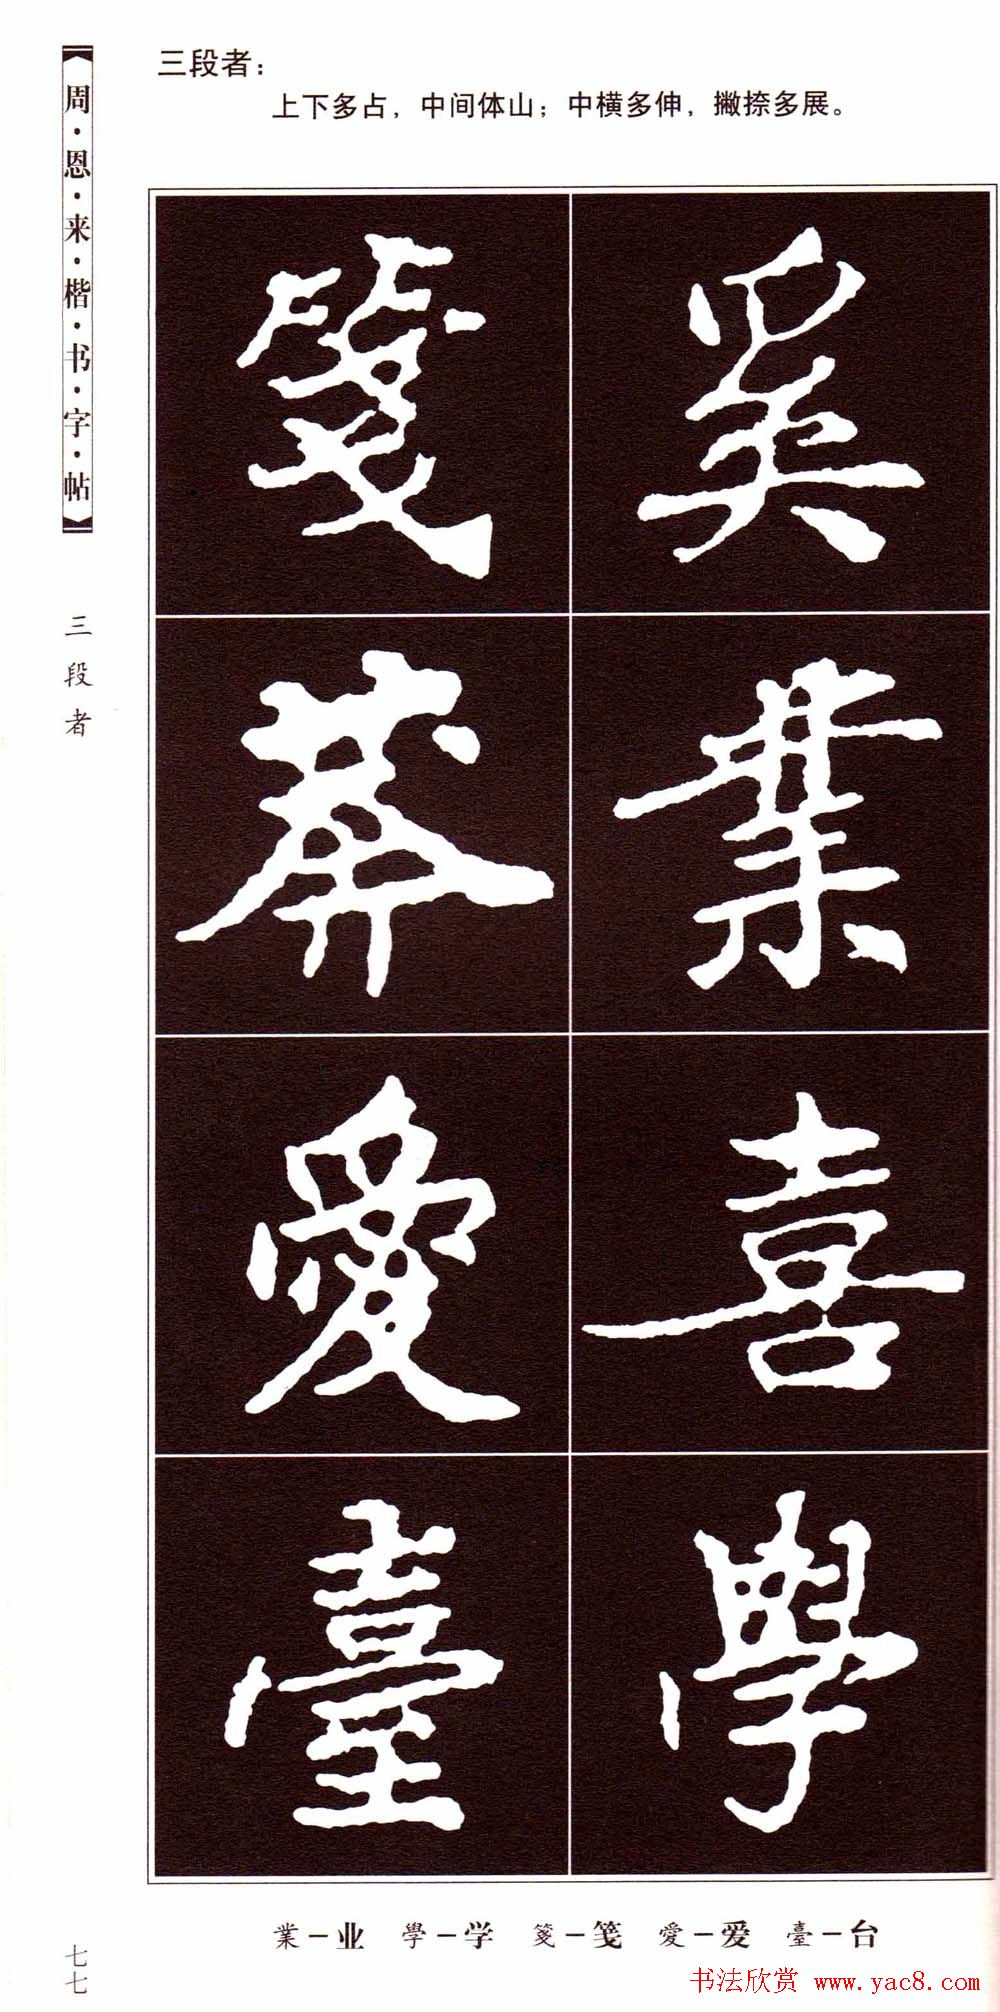 三段者：
上下多占，中间体山；中横多伸，撇捺多展。
周·恩·来·楷·书·字·帖
三段者
奚
業
喜
學
箋
莽
愛
臺
業－业 學－学 箋－笺 愛－爱 臺－台
七七
书法欣赏 www.yac8.com